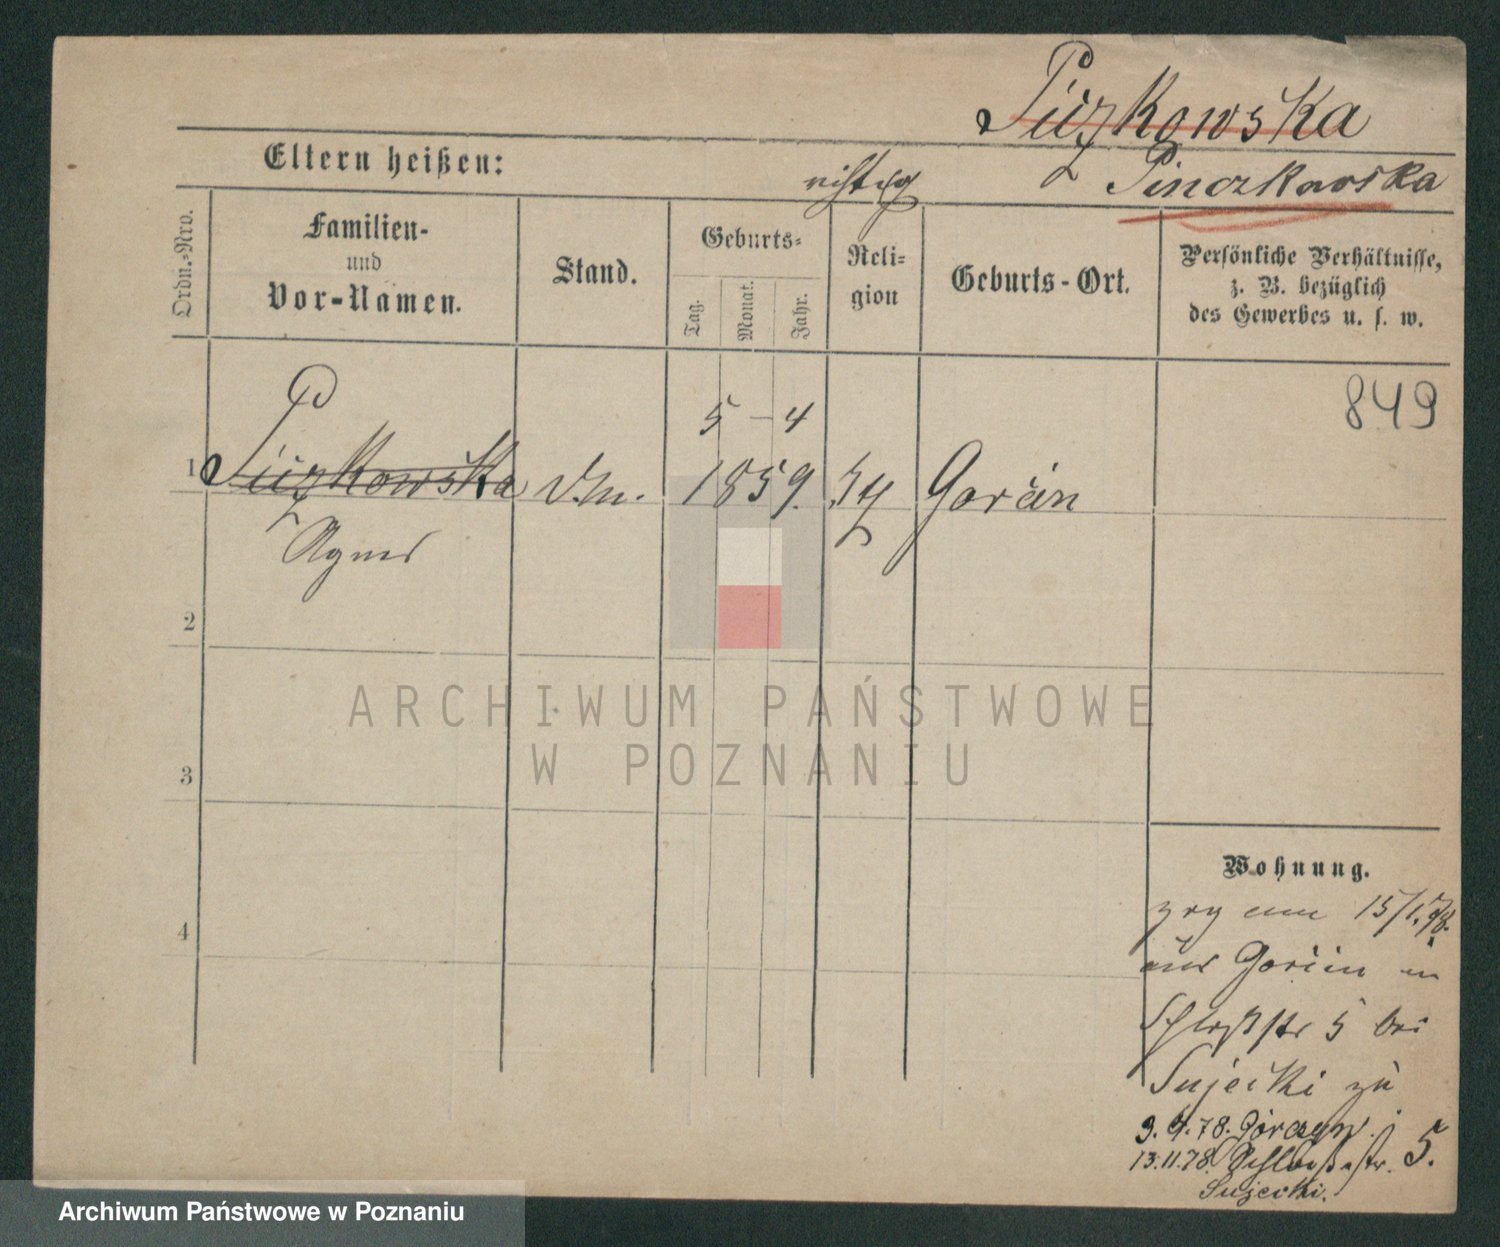 Püzkowska
Eltern heißen:
richtig Pinczkowska
Ordn.-Nro.
Familien-
und
Vor-Namen.
Stand.
Geburts-
Tag.
Monat.
Jahr.
Reli-
gion
Geburts-Ort.
Persönliche Verhältnisse,
z. B. bezüglich
des Gewerbes u. s. w.
849
5 – 4
1 Püzkowska 1859. Gorčin
Agnes
2
3
4
Wohnung.
zog am 15/1.78.
aus Gorčin in
Schloßstr 5 bei
Sujecki zu
9.4.78. Górczyn.
13.11.78. Schloßstr. 5.
Sujecki.
ARCHIWUM PAŃSTWOWE
W POZNANIU
Archiwum Państwowe w Poznaniu